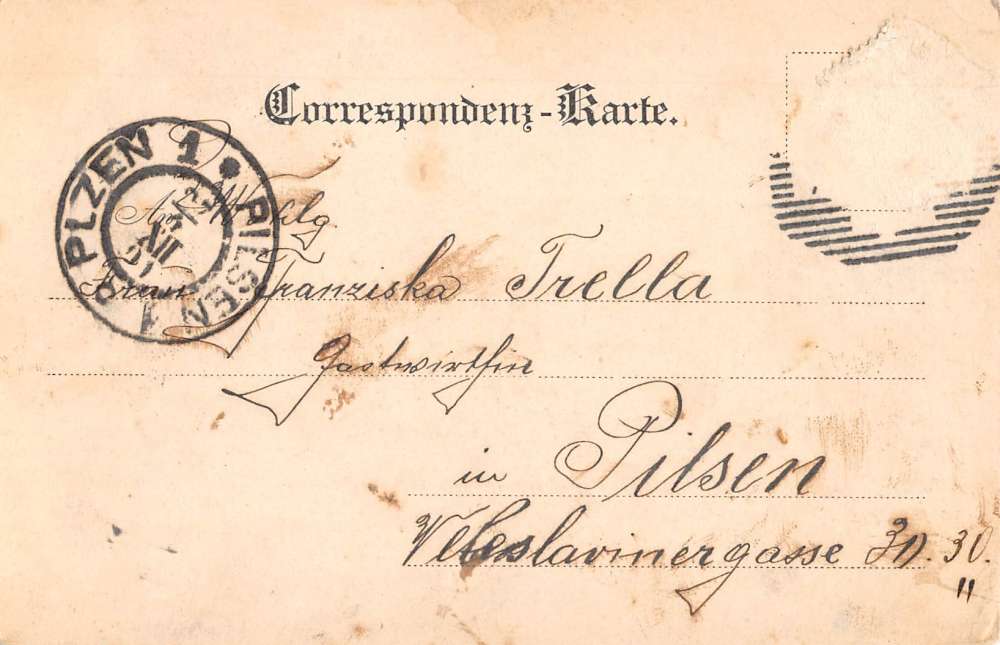 Correspondenz-Karte.
PLZEN 1 PILSEN 1
Frau Franziska Trella
Gastwirthin
in Pilsen
Weleslavinergasse 30.